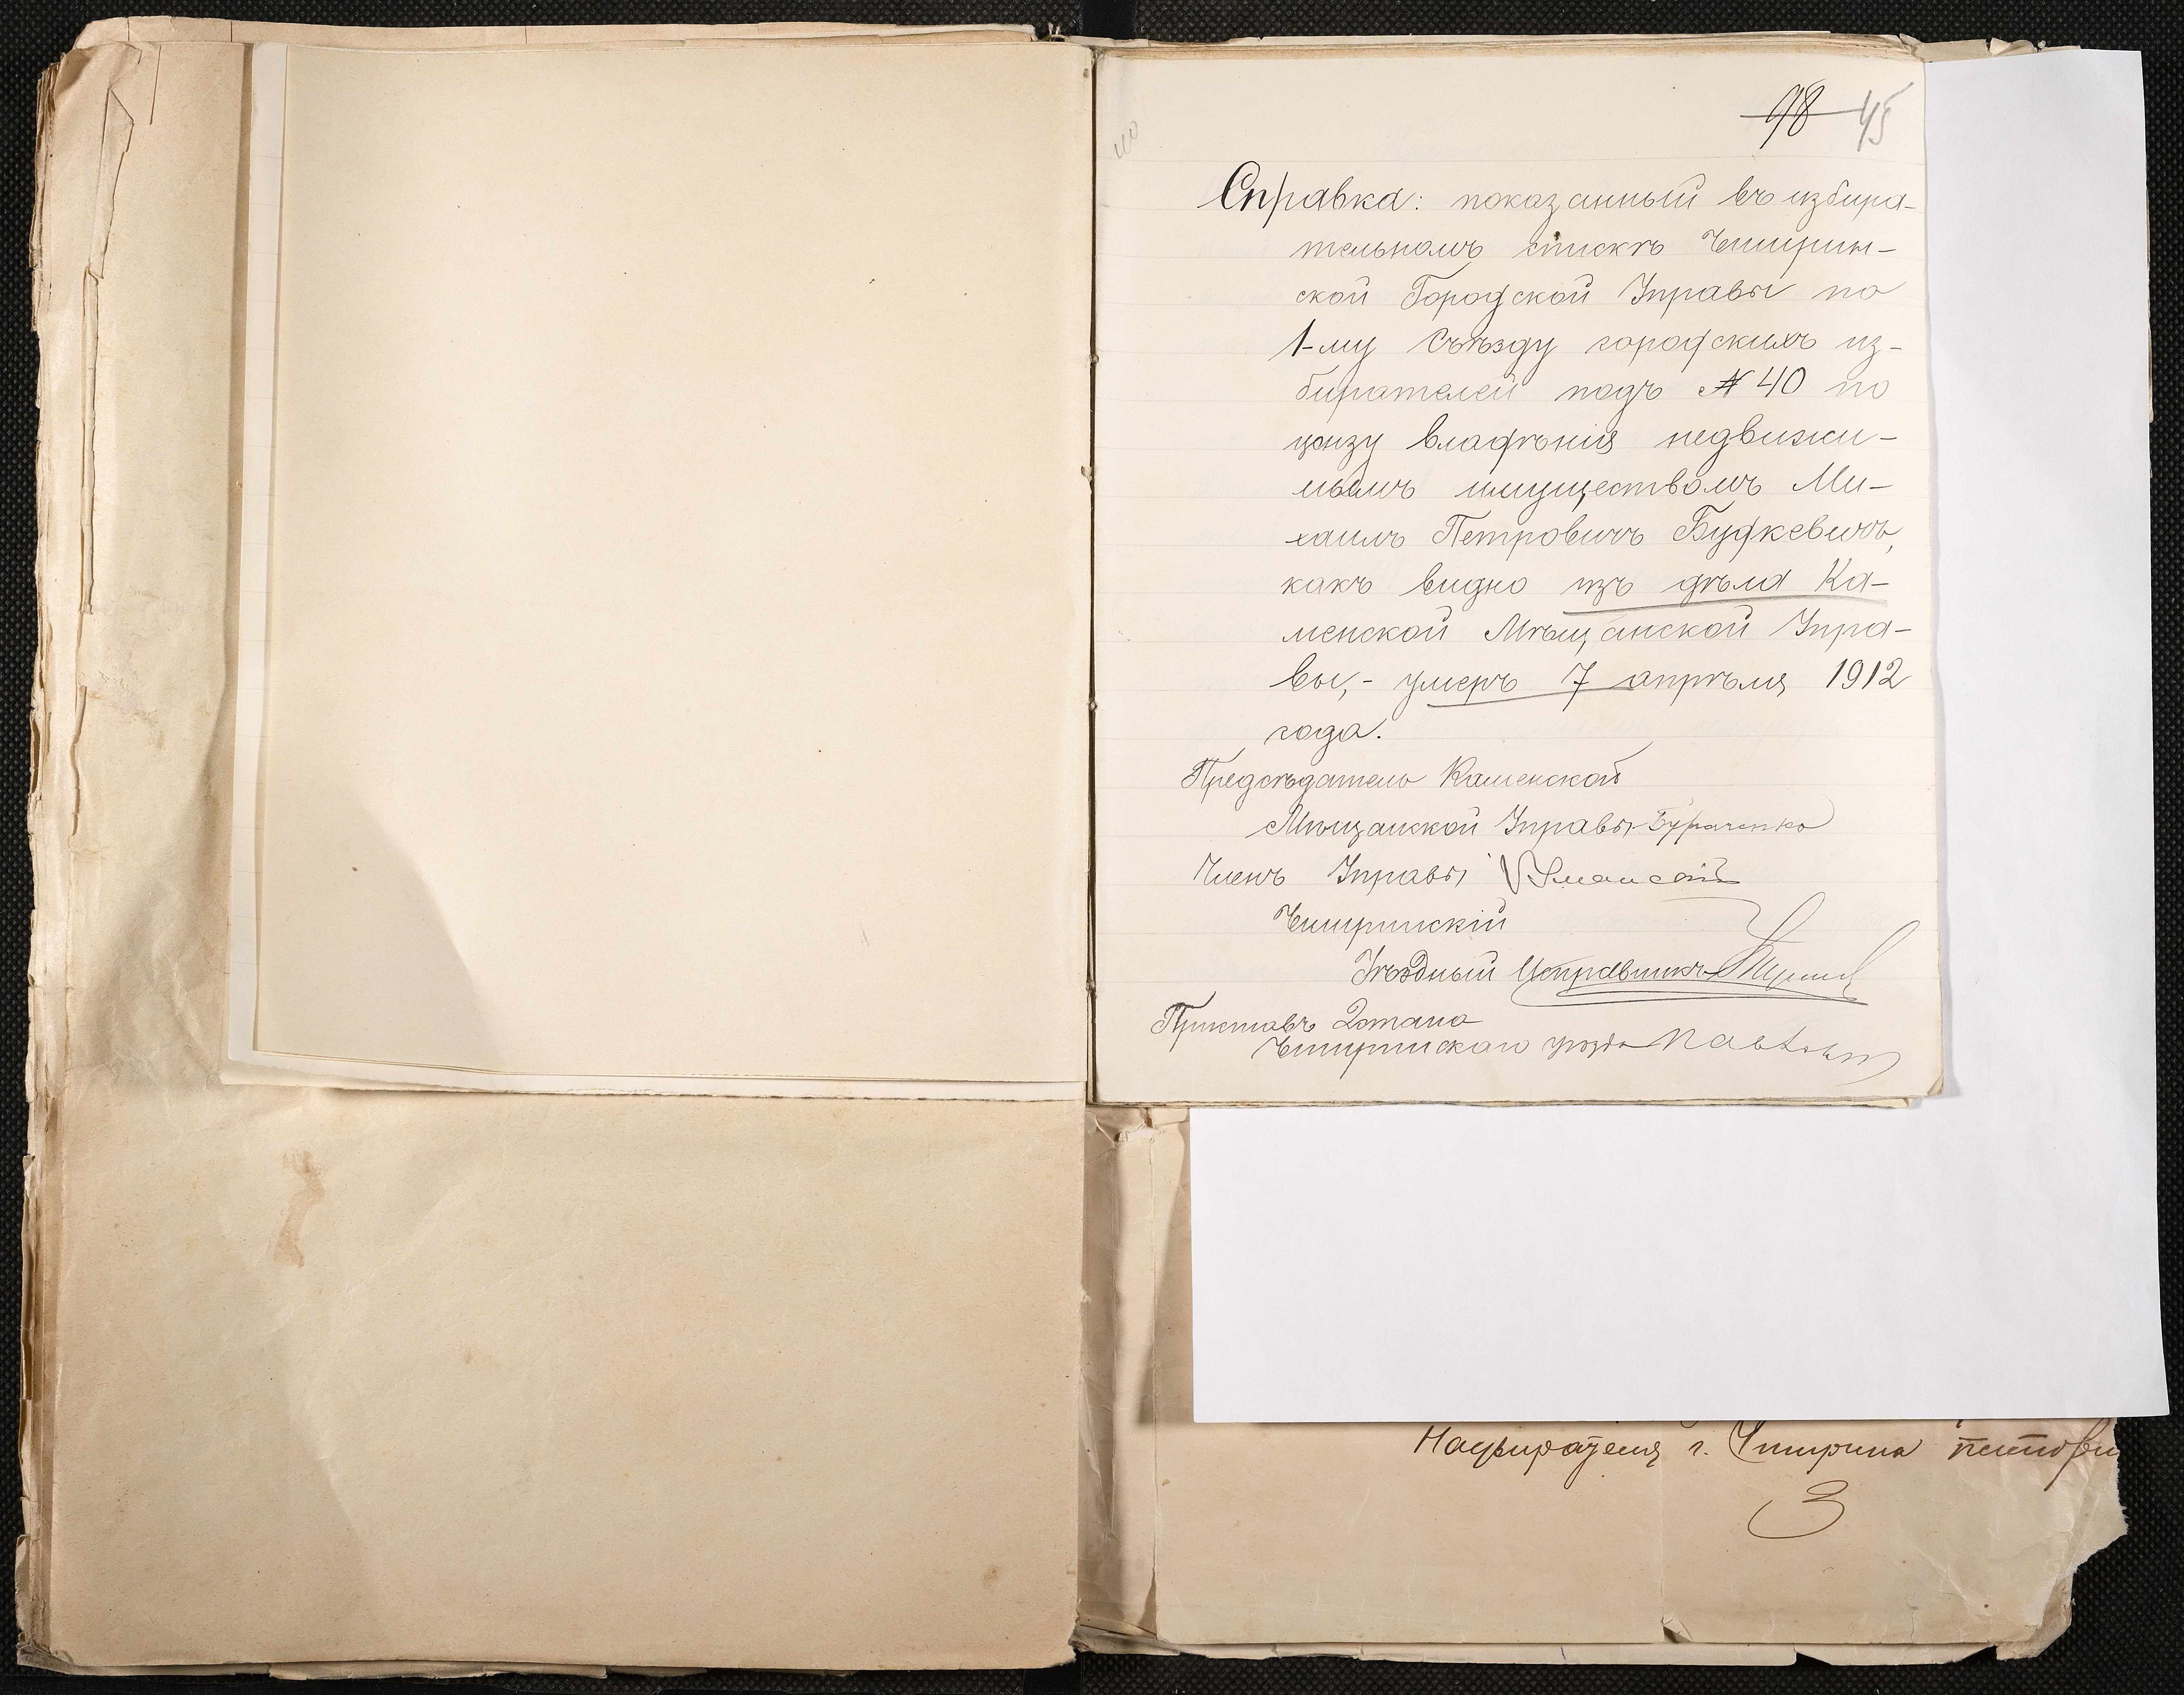 98 45
Справка: показанный въ избира-
тельномъ спискѣ Чигирин-
ской Городской Управы по
1-му Съѣзду городскихъ из-
бирателей подъ № 40 по
цензу владѣнія недвижи-
мымъ имуществомъ Ми-
хаилъ Петровичъ Будкевичъ,
какъ видно изъ дѣла Ка-
менской Мѣщанской Упра-
вы,- умеръ 7 апрѣля 1912
года.
Предсѣдатель Каменской
Мѣщанской Управы Бураченко
Членъ Управы
Чигиринскій
Уѣздный Исправникъ
Приставъ 2 стана
Чигиринскаго уѣзда
г. Чигирина
3